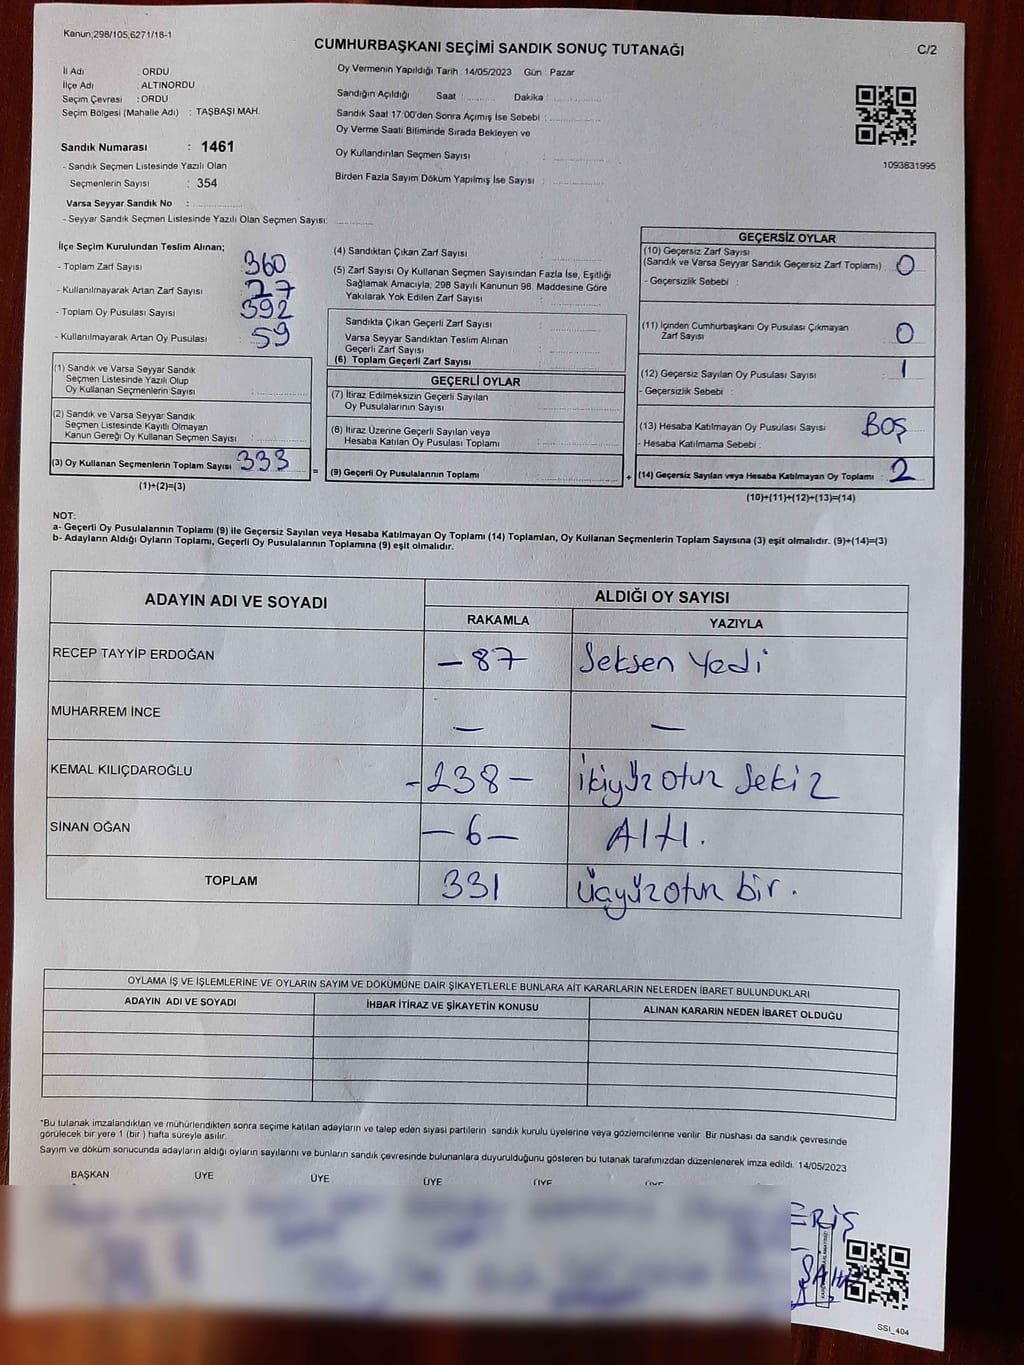 Kanun;298/105,6271/18-1
C/2
CUMHURBAŞKANI SEÇİMİ SANDIK SONUÇ TUTANAĞI
İl Adı : ORDU
İlçe Adı : ALTINORDU
Seçim Çevresi : ORDU
Seçim Bölgesi (Mahalle Adı) : TAŞBAŞI MAH.
Sandık Numarası : 1461
- Sandık Seçmen Listesinde Yazılı Olan
Seçmenlerin Sayısı : 354
Varsa Seyyar Sandık No :
- Seyyar Sandık Seçmen Listesinde Yazılı Olan Seçmen Sayısı:
Oy Vermenin Yapıldığı Tarih : 14/05/2023 Gün : Pazar
Sandığın Açıldığı Saat Dakika
Sandık Saat 17:00'den Sonra Açımış İse Sebebi :
Oy Verme Saati Bitiminde Sırada Bekleyen ve
Oy Kullandırılan Seçmen Sayısı :
Birden Fazla Sayım Döküm Yapılmış İse Sayısı :
1093831995
İlçe Seçim Kurulundan Teslim Alınan;
- Toplam Zarf Sayısı : 360
- Kullanılmayarak Artan Zarf Sayısı : 27
- Toplam Oy Pusulası Sayısı : 392
- Kullanılmayarak Artan Oy Pusulası : 59
(1) Sandık ve Varsa Seyyar Sandık
Seçmen Listesinde Yazılı Olup
Oy Kullanan Seçmenlerin Sayısı :
(2) Sandık ve Varsa Seyyar Sandık
Seçmen Listesinde Kayıtlı Olmayan
Kanun Gereği Oy Kullanan Seçmen Sayısı :
(3) Oy Kullanan Seçmenlerin Toplam Sayısı : 333
(1)+(2)=(3)
(4) Sandıktan Çıkan Zarf Sayısı :
(5) Zarf Sayısı Oy Kullanan Seçmen Sayısından Fazla İse, Eşitliği
Sağlamak Amacıyla; 298 Sayılı Kanunun 98. Maddesine Göre
Yakılarak Yok Edilen Zarf Sayısı :
Sandıkta Çıkan Geçerli Zarf Sayısı :
Varsa Seyyar Sandıktan Teslim Alınan
Geçerli Zarf Sayısı :
(6) Toplam Geçerli Zarf Sayısı :
GEÇERLİ OYLAR
(7) İtiraz Edilmeksizin Geçerli Sayılan
Oy Pusulalarının Sayısı :
(8) İtiraz Üzerine Geçerli Sayılan veya
Hesaba Katılan Oy Pusulası Toplamı :
= (9) Geçerli Oy Pusulalarının Toplamı :
GEÇERSİZ OYLAR
(10) Geçersiz Zarf Sayısı
(Sandık ve Varsa Seyyar Sandık Geçersiz Zarf Toplamı) : 0
- Geçersizlik Sebebi :
(11) İçinden Cumhurbaşkanı Oy Pusulası Çıkmayan
Zarf Sayısı : 0
(12) Geçersiz Sayılan Oy Pusulası Sayısı : 1
- Geçersizlik Sebebi :
(13) Hesaba Katılmayan Oy Pusulası Sayısı : BOŞ
- Hesaba Katılmama Sebebi :
+ (14) Geçersiz Sayılan veya Hesaba Katılmayan Oy Toplamı : 2
(10)+(11)+(12)+(13)=(14)
NOT:
a- Geçerli Oy Pusulalarının Toplamı (9) ile Geçersiz Sayılan veya Hesaba Katılmayan Oy Toplamı (14) Toplamları, Oy Kullanan Seçmenlerin Toplam Sayısına (3) eşit olmalıdır. (9)+(14)=(3)
b- Adayların Aldığı Oyların Toplamı, Geçerli Oy Pusulalarının Toplamına (9) eşit olmalıdır.
ADAYIN ADI VE SOYADI ALDIĞI OY SAYISI
RAKAMLA YAZIYLA
RECEP TAYYİP ERDOĞAN - 87 Seksen Yedi
MUHARREM İNCE - -
KEMAL KILIÇDAROĞLU - 238 - İkiyüz otuz Sekiz
SİNAN OĞAN - 6 - Altı.
TOPLAM 331 Üçyüz otuz bir.
OYLAMA İŞ VE İŞLEMLERİNE VE OYLARIN SAYIM VE DÖKÜMÜNE DAİR ŞİKAYETLERLE BUNLARA AİT KARARLARIN NELERDEN İBARET BULUNDUKLARI
ADAYIN ADI VE SOYADI İHBAR İTİRAZ VE ŞİKAYETİN KONUSU ALINAN KARARIN NEDEN İBARET OLDUĞU
*Bu tutanak imzalandıktan ve mühürlendikten sonra seçime katılan adayların ve talep eden siyasi partilerin sandık kurulu üyelerine veya gözlemcilerine verilir. Bir nüshası da sandık çevresinde
görülecek bir yere 1 (bir ) hafta süreyle asılır.
Sayım ve döküm sonucunda adayların aldığı oyların sayılarını ve bunların sandık çevresinde bulunanlara duyurulduğunu gösteren bu tutanak tarafımızdan düzenlenerek imza edildi. 14/05/2023
BAŞKAN ÜYE ÜYE ÜYE ÜYE ÜYE
SSI_404